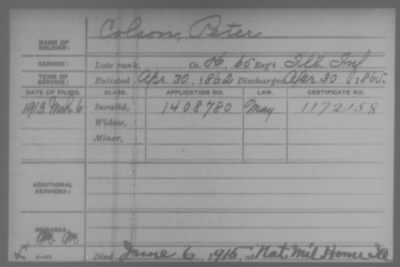 NAME OF SOLDIER: Colson, Peter
SERVICE: Late rank, Co. H, 65 Reg't Ill. Inf
TERM OF SERVICE: Enlisted Apr. 30, 1862 Discharged Apr. 30, 1865
DATE OF FILING. CLASS. APPLICATION NO. LAW. CERTIFICATE NO.
1913 Mch. 6 Invalid, 1408780 May 1172158
Widow,
Minor,
ADDITIONAL SERVICES:
REMARKS:
Died June 6, 1915, at Nat. Mil Home